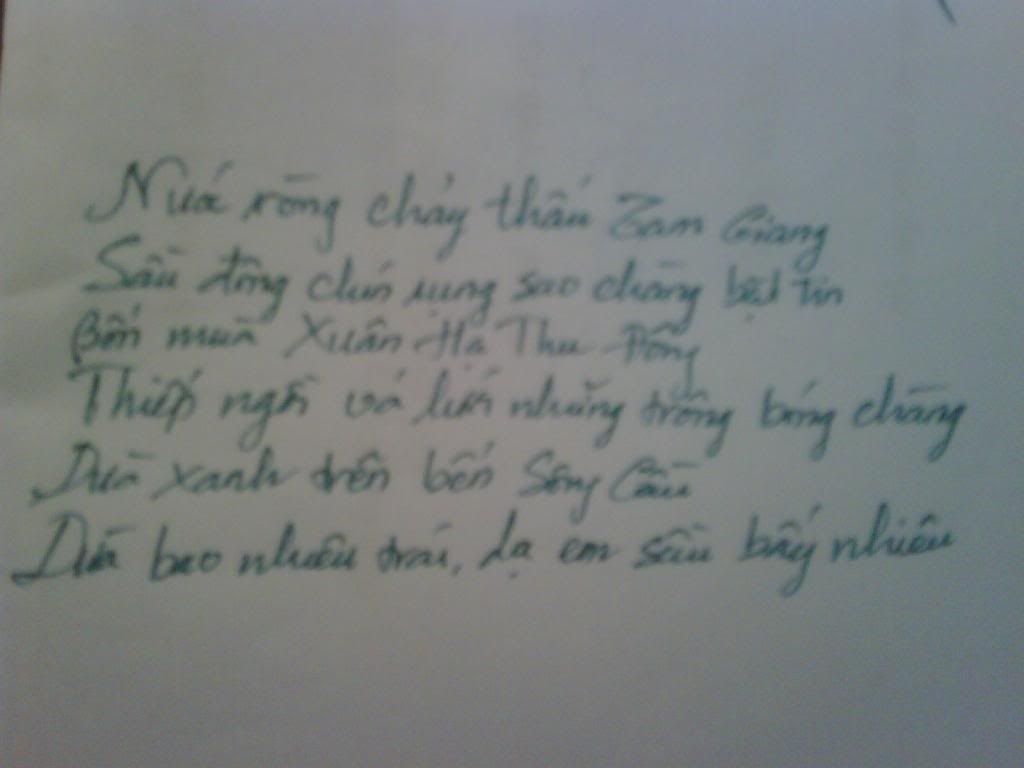 Nước ròng chảy thấu Tam Giang
Sầu đông chín rụng sao chàng biệt tin
Bốn mùa Xuân Hạ Thu Đông
Thiếp ngồi vá lưới những trông bóng chàng
Dừa xanh trên bến Sông Cầu
Dừa bao nhiêu trái, dạ em sầu bấy nhiêu